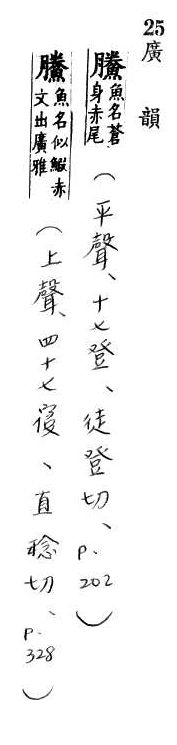 25廣韻
鰧魚名蒼
身赤尾
（平聲、十七登、徒登切、p.202）
鰧魚名似鰕赤
文出廣雅
（上聲、四十七寑、直稔切、p.328）